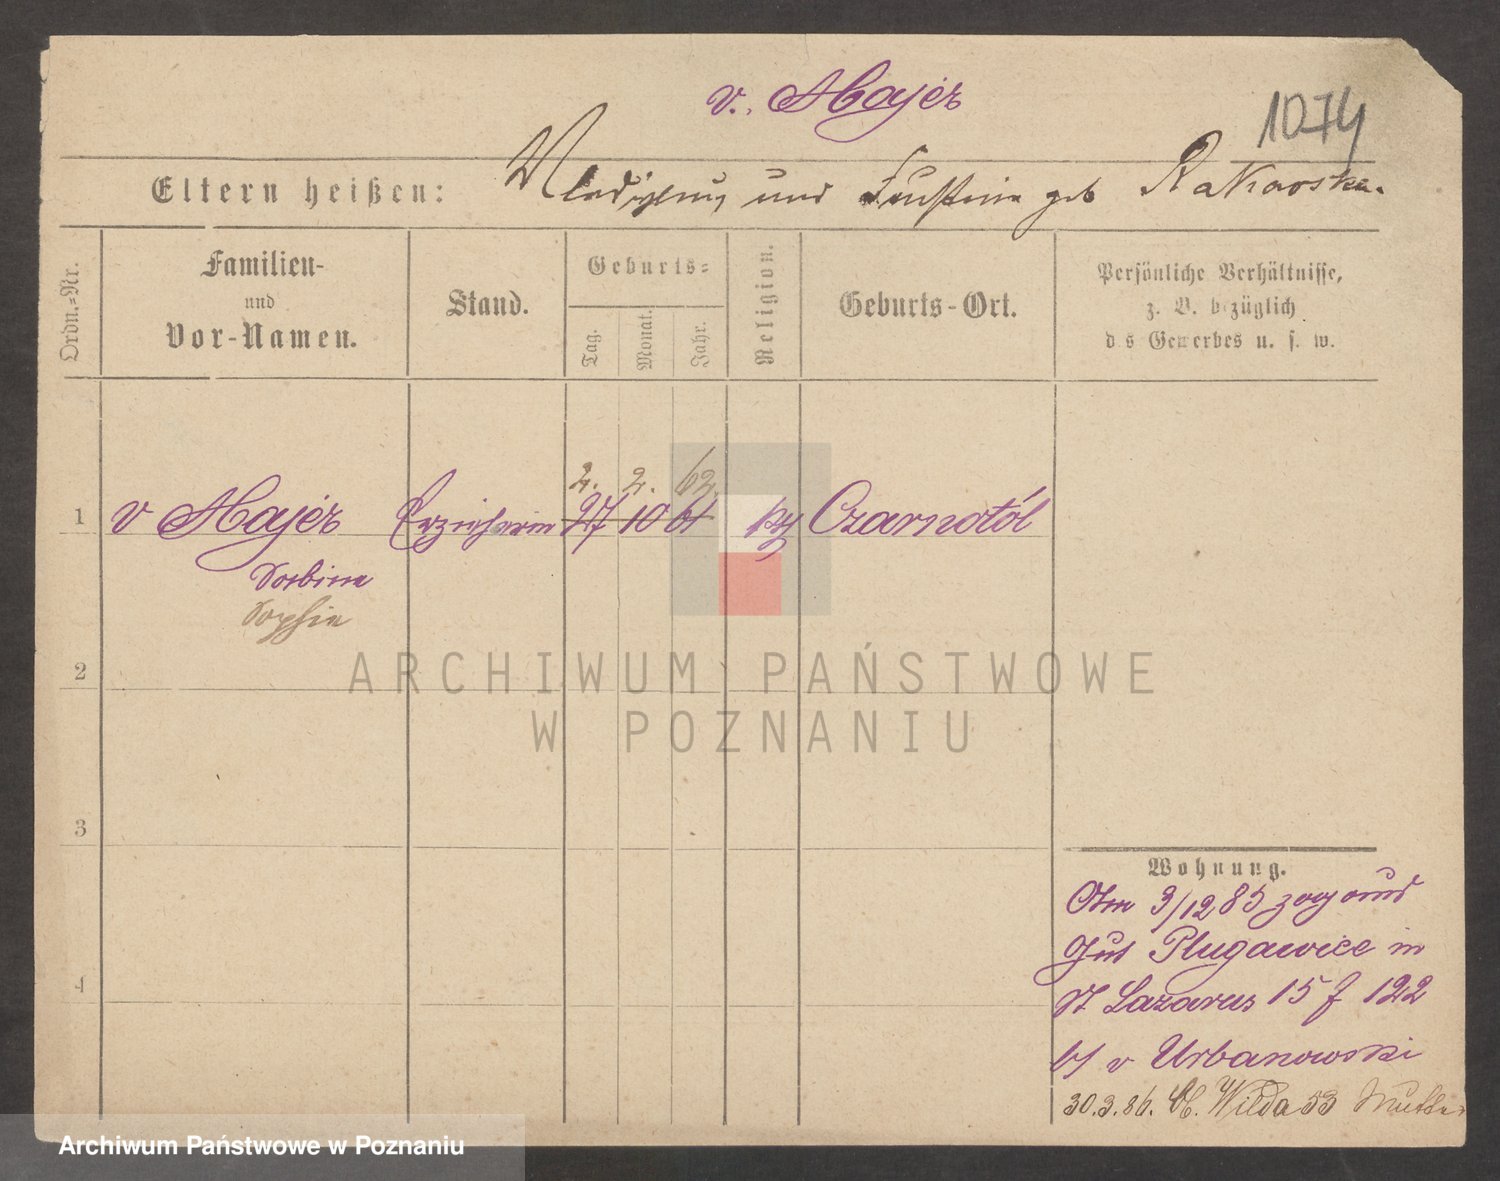 v. Majer
1074
Eltern heißen: Wladislaus und Faustine geb Rakowska.
Ordn.=Nr.
Familien-
und
Vor-Namen.
Stand.
Geburts=
Tag.
Monat.
Jahr.
Religion.
Geburts-Ort.
Persönliche Verhältnisse,
z. B. bezüglich
d s Gewerbes u. s. w.
2. 2. 62.
1 v Majer Erzieherin 27 10 61 Czarnotól
Sophie
2
ARCHIWUM PAŃSTWOWE
W POZNANIU
3
4
Wohnung.
Am 3/12 85 zog
Gut Plugawice in
St Lazarus 15 f 122
b/ v Urbanowski
30.3.86. Ob. Wilda 53 Mutter
Archiwum Państwowe w Poznaniu